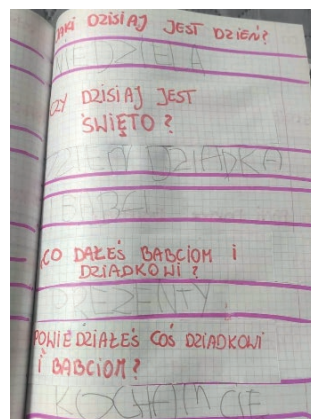 JAKI DZISIAJ JEST DZIEŃ?
NIEDZIELA
CZY DZISIAJ JEST
ŚWIĘTO?
DZIEŃ DZIADKA
I BABCI
CO DAŁEŚ BABCIOM I
DZIADKOWI?
PREZENTY
POWIEDZIAŁEŚ COŚ DZIADKOWI
I BABCIOM?
KOCHAM CIĘ